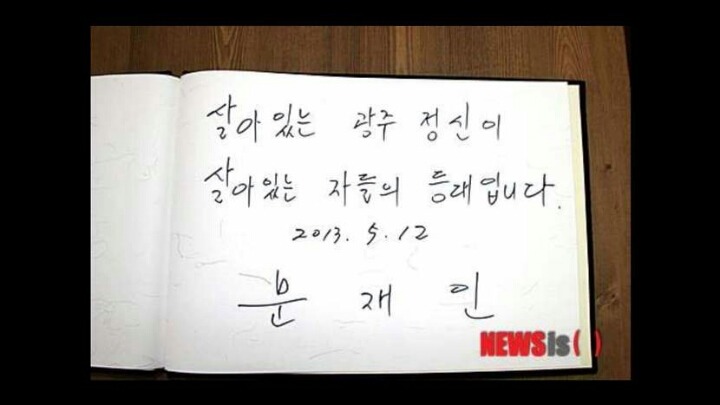 살아있는 광주 정신이
살아있는 자들의 등대입니다.
2013. 5. 12
문 재 인
NEWSis( )